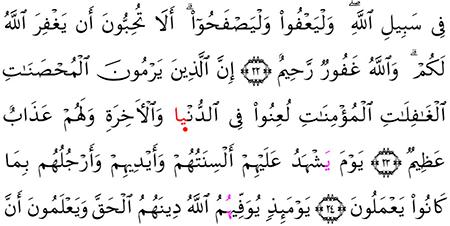 فِى سَبِيلِ ٱللَّهِ ۖ وَلْيَعْفُوا۟ وَلْيَصْفَحُوٓا۟ ۗ أَلَا تُحِبُّونَ أَن يَغْفِرَ ٱللَّهُ
لَكُمْ ۗ وَٱللَّهُ غَفُورٌ رَّحِيمٌ ٢٢ إِنَّ ٱلَّذِينَ يَرْمُونَ ٱلْمُحْصَنَـٰتِ
ٱلْغَـٰفِلَـٰتِ ٱلْمُؤْمِنَـٰتِ لُعِنُوا۟ فِى ٱلدُّنْيا وَٱلْأَخِرَةِ وَلَهُمْ عَذَابٌ
عَظِيمٌ ٢٣ يَوْمَ يَشْهَدُ عَلَيْهِمْ أَلْسِنَتُهُمْ وَأَيْدِيهِمْ وَأَرْجُلُهُم بِمَا
كَانُوا۟ يَعْمَلُونَ ٢٤ يَوْمَئِذٍ يُوَفِّيهُمُ ٱللَّهُ دِينَهُمُ ٱلْحَقَّ وَيَعْلَمُونَ أَنَّ